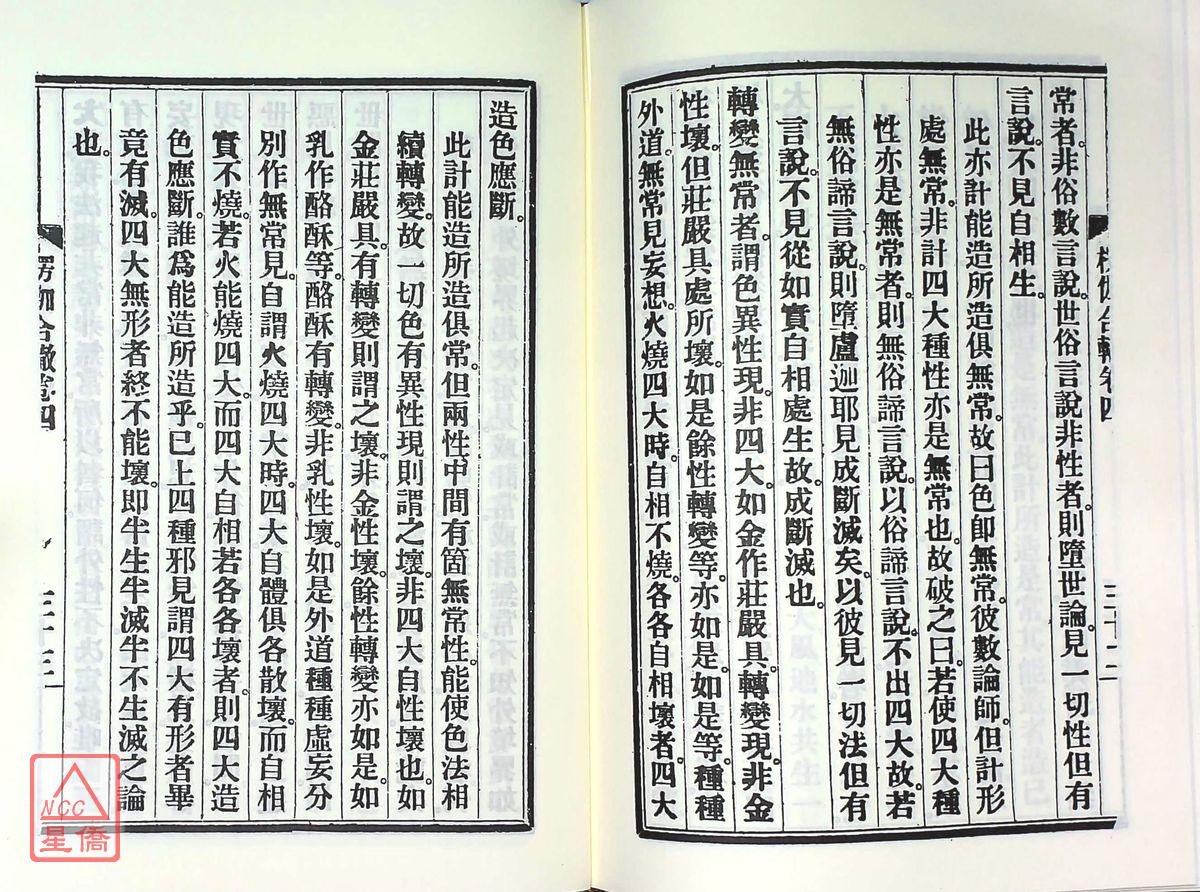 常者。非俗數言說。世俗言說非性者。則墮世論。見一切性但有
言說。不見自相生。
此亦計能造所造俱無常。故曰色卽無常。彼數論師。但計形
處無常。非計四大種性亦是無常也。故破之曰。若使四大種
性亦是無常者。則無俗諦言說。以俗諦言說。不出四大故。若
無俗諦言說。則墮盧迦耶見成斷滅矣。以彼見一切法但有
言說。不見從如實自相處生故。成斷滅也。
轉變無常者。謂色異性現。非四大。如金作莊嚴具。轉變現。非金
性壞。但莊嚴具處所壞。如是餘性轉變等。亦如是。如是等種種
外道。無常見妄想。火燒四大時。自相不燒。各各自相壞者。四大
楞伽合轍卷四
三十二
造色應斷。
此計能造所造俱常。但兩性中間有箇無常性。能使色法相
續轉變。故一切色有異性現則謂之壞。非四大自性壞也。如
金莊嚴具。有轉變則謂之壞。非金性壞。餘性轉變亦如是。如
乳作酪酥等。酪酥有轉變。非乳性壞。如是外道種種虛妄分
別作無常見。自謂火燒四大時。四大自體俱各散壞。而自相
實不燒。若火能燒四大。而四大自相若各各壞者。則四大造
色應斷。誰爲能造所造乎。已上四種邪見。謂四大有形者畢
竟有滅。四大無形者終不能壞。卽半生半滅半不生滅之論
也。
楞伽合轍卷四
三十三
NCC
星僑